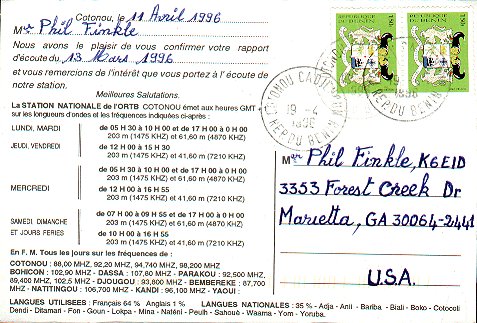 Cotonou, le 11 Avril 1996
Mr Phil Finkle
Nous avons le plaisir de vous confirmer votre rapport
d'écoute du 13 Mars 1996
et vous remercions de l'intérêt que vous portez à l'écoute de
notre station.
Meilleures Salutations.
La STATION NATIONALE de l'ORTB COTONOU émet aux heures GMT
sur les longueurs d'ondes et les fréquences indiquées ci-après :
LUNDI, MARDI de 05 H 30 à 10 H 00 et de 17 H 00 à 0 H 00
203 m (1475 KHZ) et 61,60 m (4870 KHZ)
JEUDI, VENDREDI de 12 H 00 à 15 H 30
203 m (1475 KHZ) et 41,60 m (7210 KHZ)
de 05 H 30 à 10 H 00 et de 17 H 00 à 0 H 00
203 m (1475 KHZ) et 61,60 m (4870 KHZ)
MERCREDI de 12 H 00 à 16 H 55
203 m (1475 KHZ) et 41,60 m (7210 KHZ)
de 07 H 00 à 09 H 55 et de 17 H 00 à 0 H 00
SAMEDI DIMANCHE 203 m (1475 KHZ) et 61,60 m (4870 KHZ)
ET JOURS FERIES de 10 H 00 à 16 H 55
203 m (1475 KHZ) et 41,60 m (7210 KHZ)
En F. M. Tous les jours sur les fréquences de :
COTONOU : 88,00 MHZ, 92,20 MHZ, 94,740 MHZ, 98,200 MHZ
BOHICON : 102,90 MHZ - DASSA : 107,80 MHZ - PARAKOU : 92,500 MHZ,
89,400 MHZ, 102,5 MHZ - DJOUGOU : 93,800 MHZ - BEMBEREKE : 87,700
MHZ - NATITINGOU : 106,700 MHZ - KANDI : 96,100 MHZ - YAOUI :
LANGUES UTILISEES : Français 64 % Anglais 1 % LANGUES NATIONALES : 35 % - Adja - Anii - Bariba - Biali - Boko - Cotocoli
Dendi - Ditamari - Fon - Goun - Lokpa - Mina - Naténi - Peulh - Sahouè - Waama - Yom - Yoruba.
REPUBLIQUE DU BENIN
REPUBLIQUE DU BENIN
COTONOU
19 -4
1996
REP DU BENIN
Mr Phil Finkle, K6EID
3353 Forest Creek Dr
Marietta, GA 30064-2441
U.S.A.